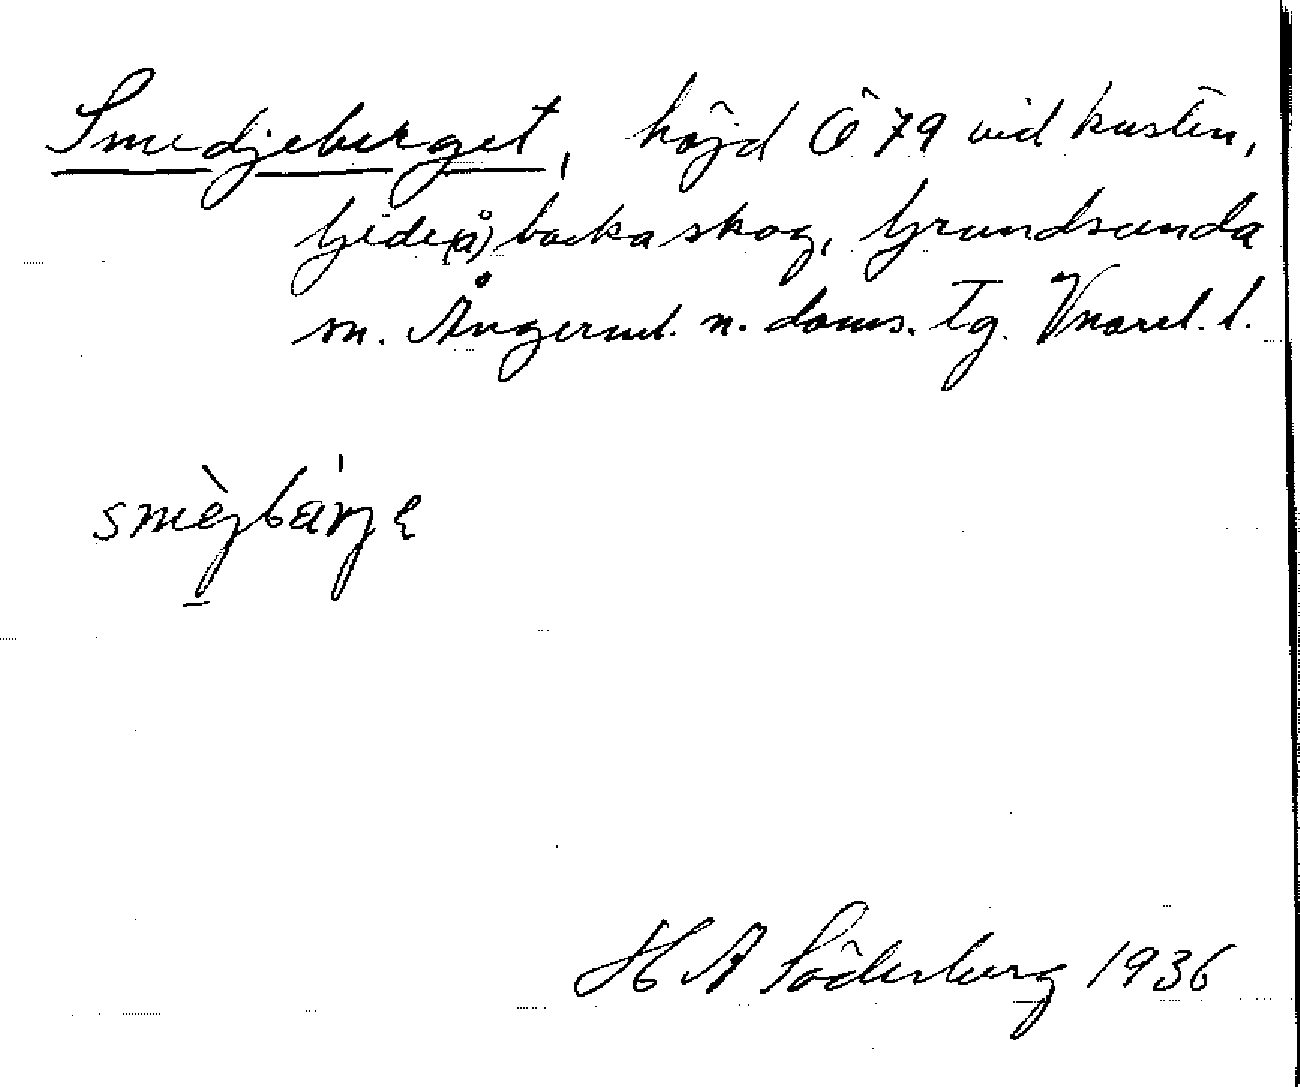 Smedjeberget, höjd Ö 79 vid kusten,
Gide(å)backa skog, Grundsunda
sn. Ångerml. n. doms. Tg. Vnorrl. l.
smèjbàrjε
H A Söderberg 1936